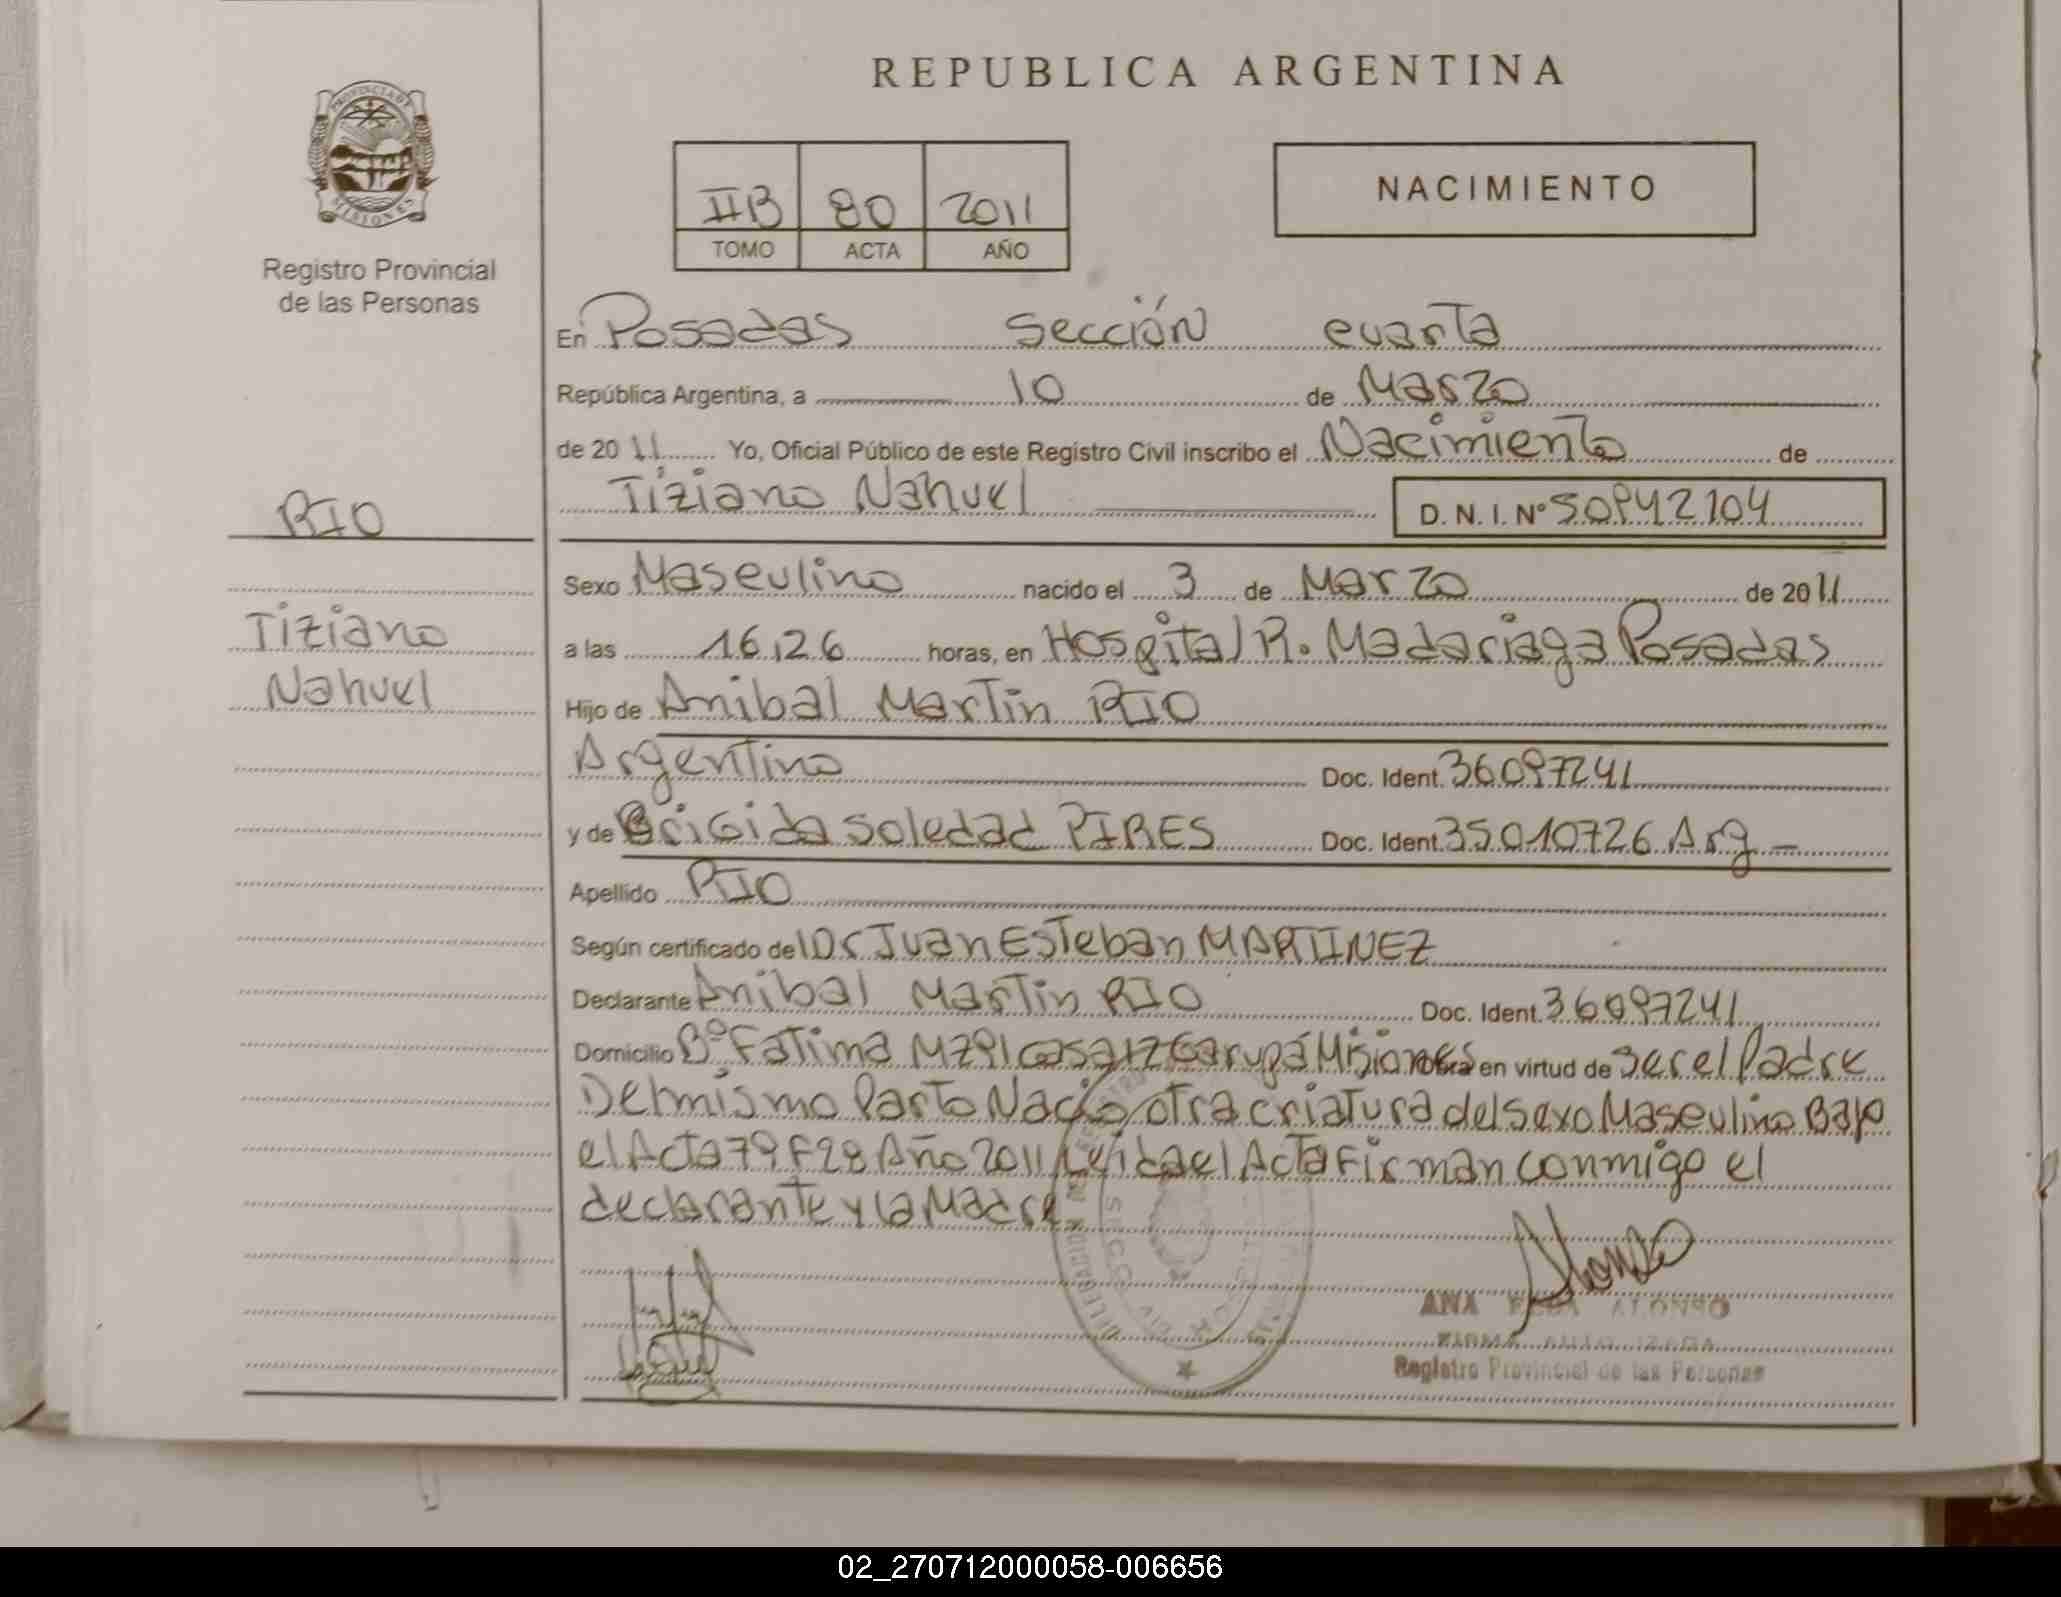 REPUBLICA ARGENTINA
PROVINCIA DE
MISIONES
Registro Provincial
de las Personas
IIB 80 2011
TOMO ACTA AÑO
NACIMIENTO
En Posadas Sección cuarta
República Argentina, a 10 de Marzo
de 2011 Yo, Oficial Público de este Registro Civil inscribo el Nacimiento de
Tiziano Nahuel D. N. I. Nº 50942104
RIO
Tiziano
Nahuel
Sexo Masculino nacido el 3 de Marzo de 2011
a las 16,26 horas, en Hospital R. Madariaga Posadas
Hijo de Anibal Martin RIO
Argentino Doc. Ident. 36097241
y de Brigida Soledad PIRES Doc. Ident. 35010726 Arg -
Apellido RIO
Según certificado del Dr Juan Esteban MARTINEZ
Declarante Anibal Martin RIO Doc. Ident. 36097241
Domicilio Bº Fatima MZ91 casa 12 Garupá Misiones obra en virtud de ser el Padre
Del mismo Parto Nacio otra criatura del sexo Masculino Bajo
el Acta 79 F28 Año 2011 Leida el Acta Firman conmigo el
declarante y la Madre
Alonso
ANA ALONSO
FIRMA AUTORIZADA
Registro Provincial de las Personas
02_270712000058-006656